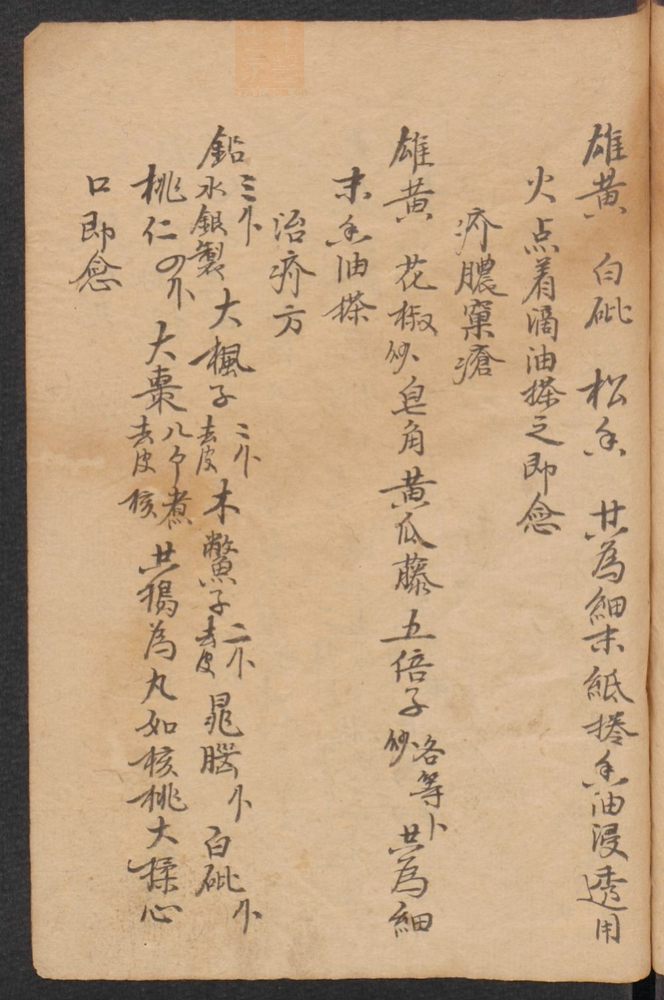 雄黄 白砒 松香 共為細末紙捲香油浸透用
火点着滴油搽之即愈
疥膿窠瘡
雄黄 花椒炒 皂角 黄瓜藤 五倍子炒 各等卜 共為細
末香油搽
治疥方
鉛三卜 水銀製 大楓子三卜去皮 木鱉子二卜去皮 晁腦卜 白砒卜
桃仁の卜 大棗八个煮去皮核 共搗為丸如核桃大揉心
口即愈